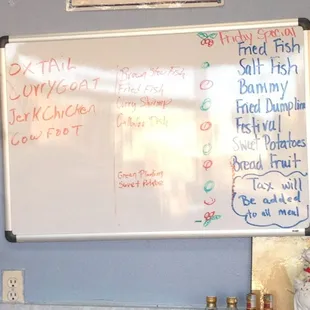 OXTAIL
CURRYGOAT
JerKChicken
COW FOOT
Brown Stew Fish
Fried Fish
Curry Shrimp
Fish
Green Plantain
Sweet Potatoe
Friday Special
Fried Fish
Salt Fish
Bammy
Fried Dumplin
Festival
Sweet Potatoes
Bread Fruit
Tax will
Be added
to all meal